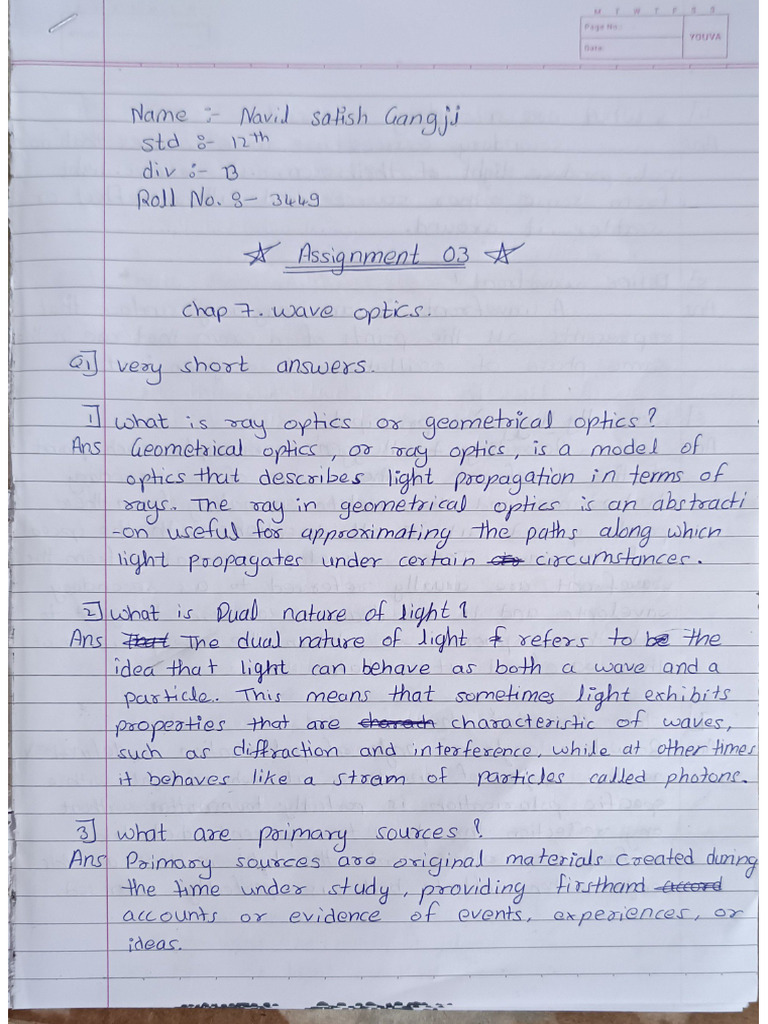 M T W T F S S
Page No.:
Date:
YOUVA
Name :- Navil Satish Gangji
Std :- 12th
div :- B
Roll No. :- 3449
☆ Assignment 03 ☆
Chap 7. wave optics.
Q1] very short answers.
1] What is ray optics or geometrical optics?
Ans Geometrical optics, or ray optics, is a model of
optics that describes light propagation in terms of
rays. The ray in geometrical optics is an abstracti
-on useful for approximating the paths along which
light propagates under certain circumstances.
2] What is Dual nature of light?
Ans The dual nature of light refers to the
idea that light can behave as both a wave and a
particle. This means that sometimes light exhibits
properties that are characteristic of waves,
such as diffraction and interference, while at other times
it behaves like a stram of particles called photons.
3] What are primary sources?
Ans Primary sources are original materials created during
the time under study, providing firsthand
accounts or evidence of events, experiences, or
ideas.